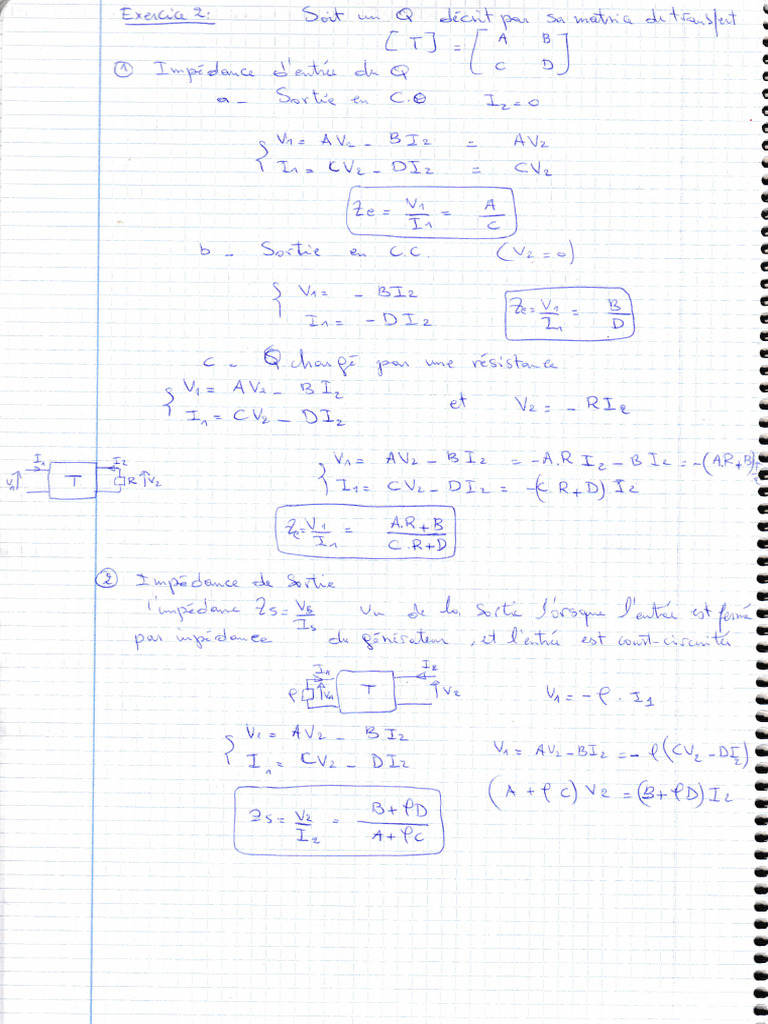 Exercice 2: Soit un Q décrit par sa matrice de transfert
[T] = [A B
C D]
① Impédance d'entrée du Q
a - Sortie en C.O I2 = 0
{ V1 = AV2 - BI2 = AV2
I1 = CV2 - DI2 = CV2
Ze = V1/I1 = A/C
b - Sortie en C.C. (V2 = 0)
{ V1 = - BI2
I1 = - DI2
Ze = V1/I1 = B/D
c - Q chargé par une résistance
{ V1 = AV2 - BI2
I1 = CV2 - DI2
et V2 = - RI2
I1 I2
V1 T R V2
{ V1 = AV2 - BI2 = -A.R I2 - BI2 = -(A.R+B)
I1 = CV2 - DI2 = -(C.R+D) I2
Ze = V1/I1 = A.R+B / C.R+D
② Impédance de Sortie
l'impédance Zs = Vs/Is vu de la sortie lorsque l'entrée est fermé
par impédance du générateur, et l'entrée est court-circuitée
I1 I2
ρ V1 T V2
V1 = -ρ . I1
{ V1 = AV2 - BI2
I1 = CV2 - DI2
V1 = AV2 - BI2 = -ρ(CV2 - DI2)
(A + ρC) V2 = (B + ρD) I2
Zs = V2/I2 = B + ρD / A + ρC